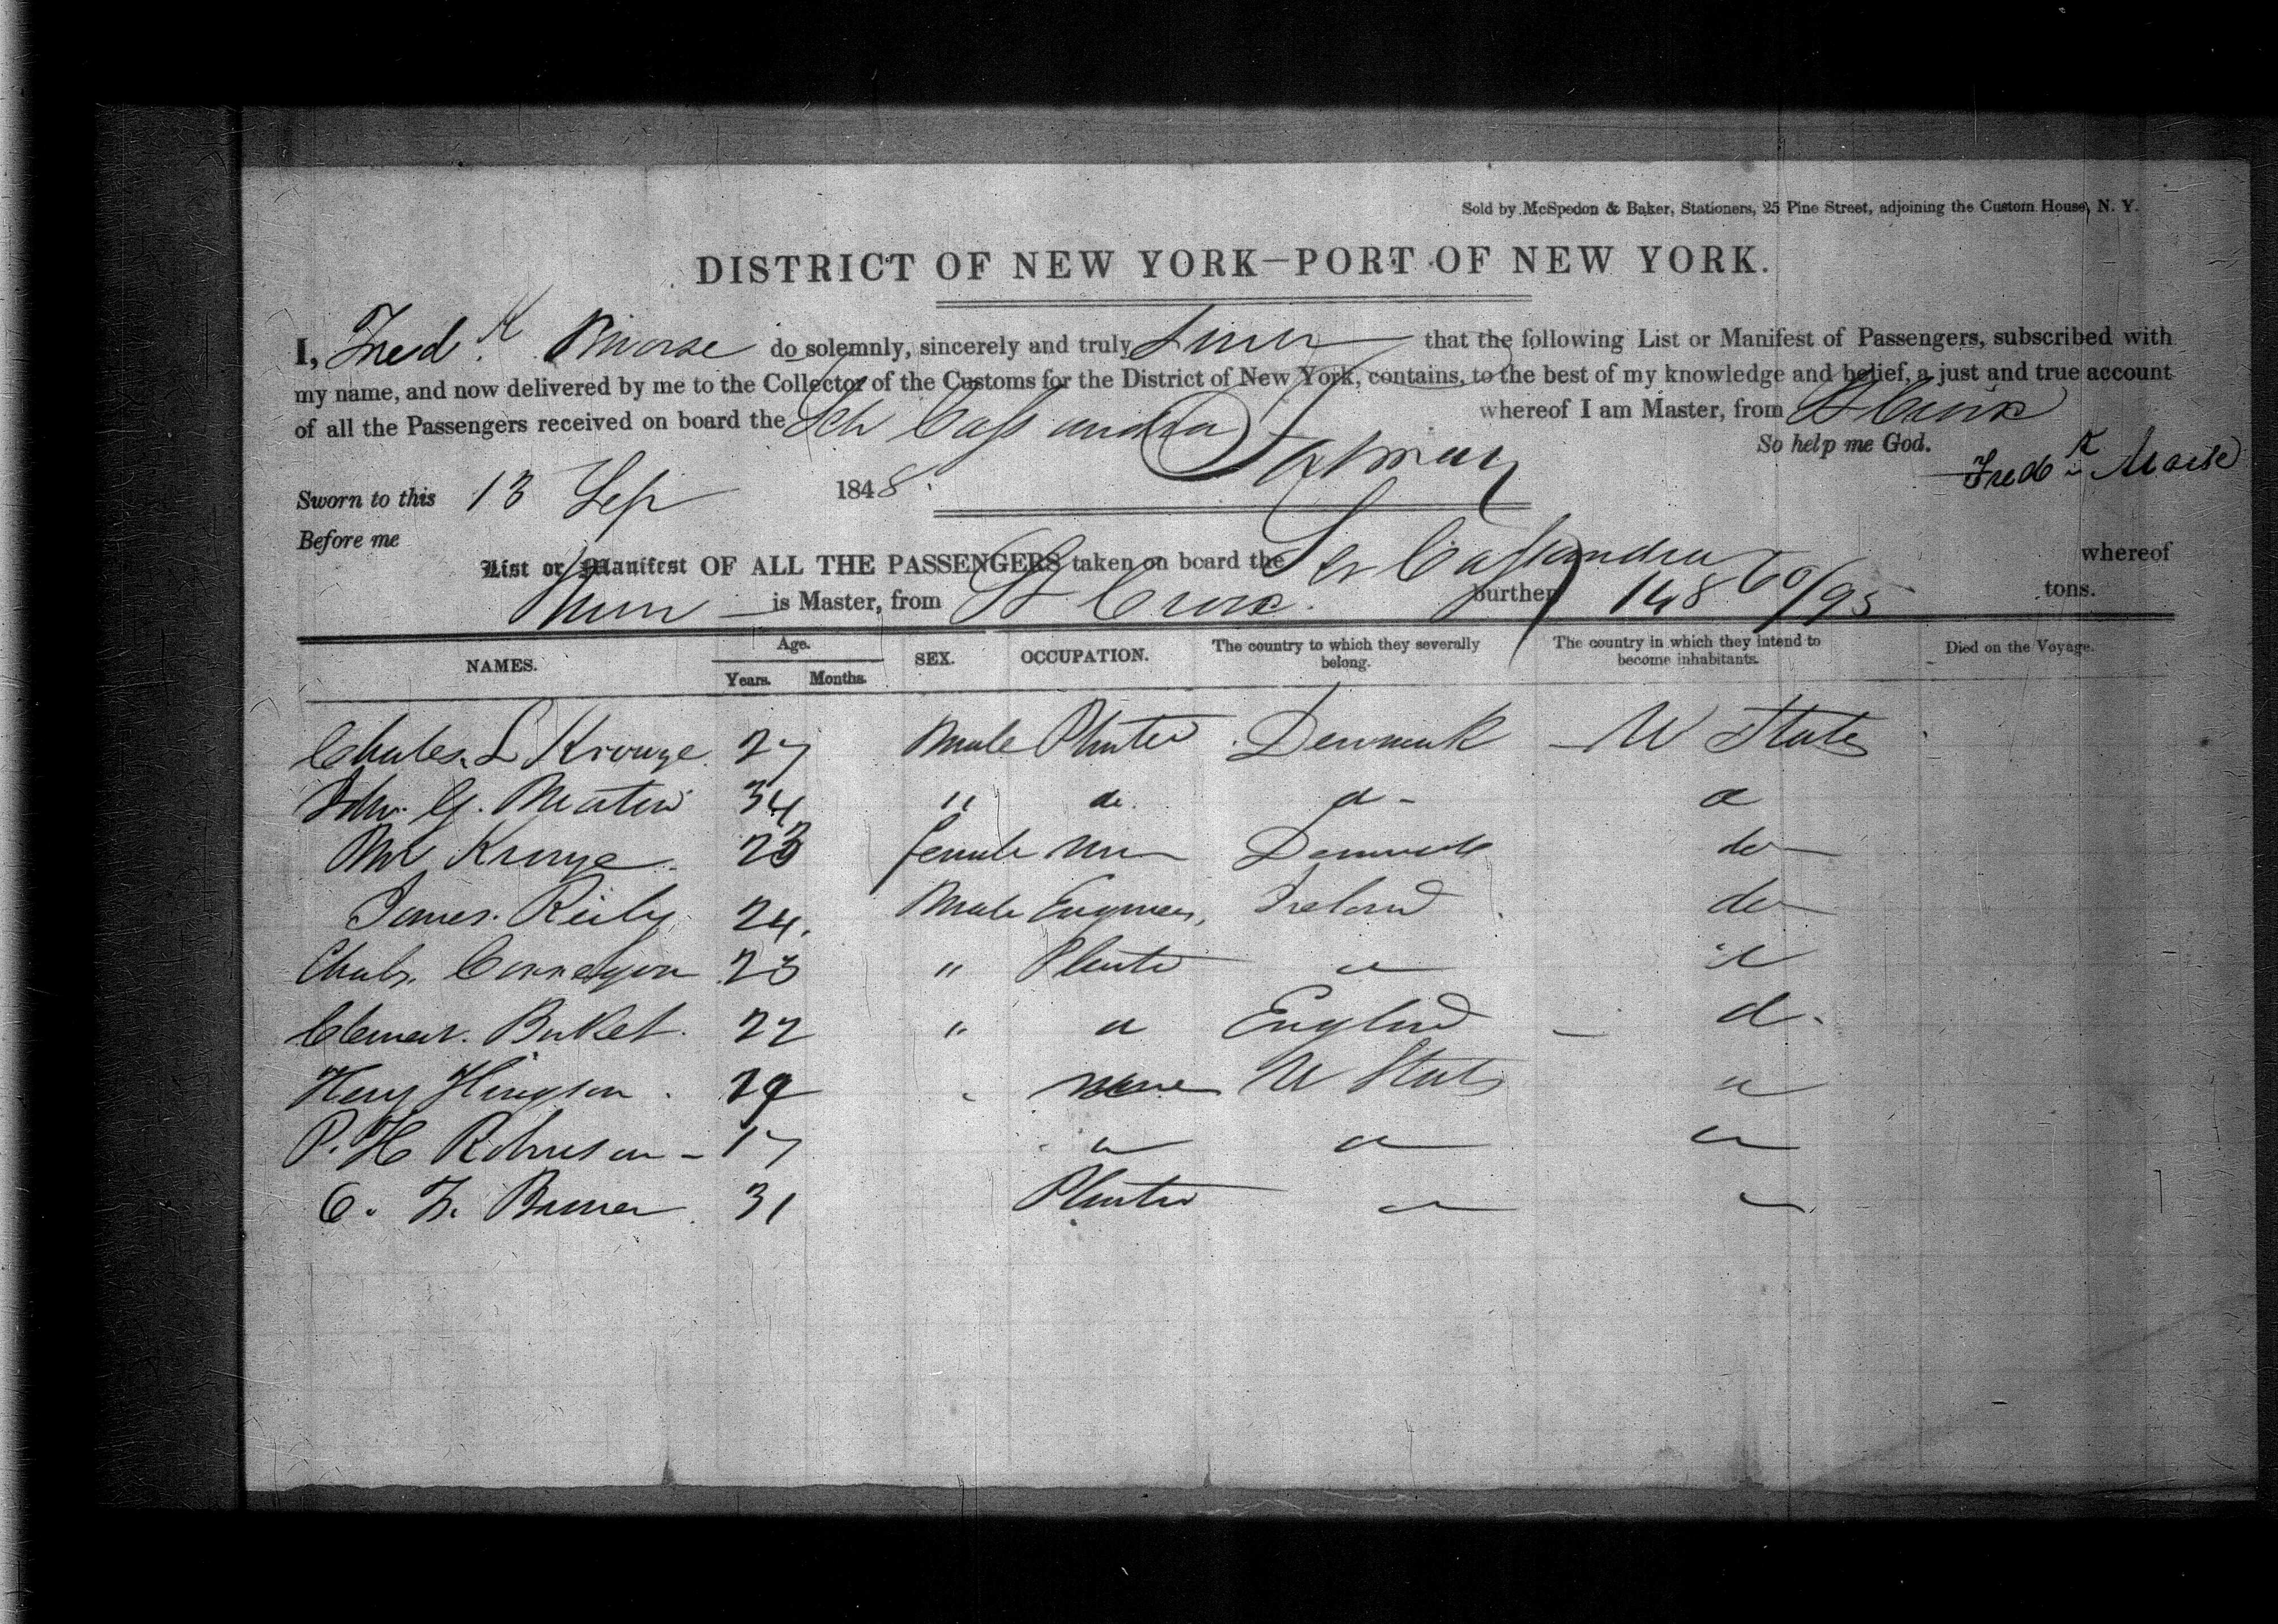 Sold by McSpedon & Baker, Stationers, 25 Pine Street, adjoining the Custom House, N. Y.
DISTRICT OF NEW YORK—PORT OF NEW YORK.
I, Fred.k Morse do solemnly, sincerely and truly Swear that the following List or Manifest of Passengers, subscribed with
my name, and now delivered by me to the Collector of the Customs for the District of New York, contains, to the best of my knowledge and belief, a just and true account
of all the Passengers received on board the Sch Cassandra whereof I am Master, from St Croix
So help me God.
Sworn to this 13 Sep 1848. Fredk Morse
Before me
List or Manifest OF ALL THE PASSENGERS taken on board the Sch Cassandra whereof
is Master, from St Croix. burthen 148 60/95 tons.
NAMES. Age. SEX. OCCUPATION. The country to which they severally belong. The country in which they intend to become inhabitants. Died on the Voyage.
Years. Months.
Charles. L 27 Male Planter Denmark U States
John. G. Martin 34 " do. d- d
23 female Denmark do
James. Reily 24. Male Engineer, Ireland do
Charles. 23 " Planter
Clement. 22 " England d.
Henry 29 none U States
P. H Robinson 17
C. F. 31 Planter